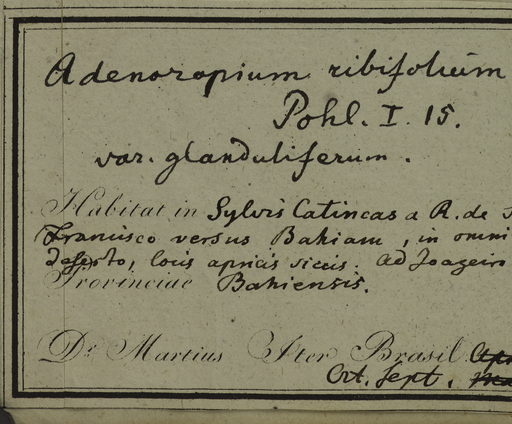 Adenoropium ribifolium
Pohl. I. 15.
var. glanduliferum.
Habitat in Sylvis Catincas a R. de S
Francisco versus Bahiam, in omni
deserto, locis apricis siccis. Ad Joazeiro
Provinciae Bahiensis.
Dr. Martius Iter Brasil.
Oct. Sept.